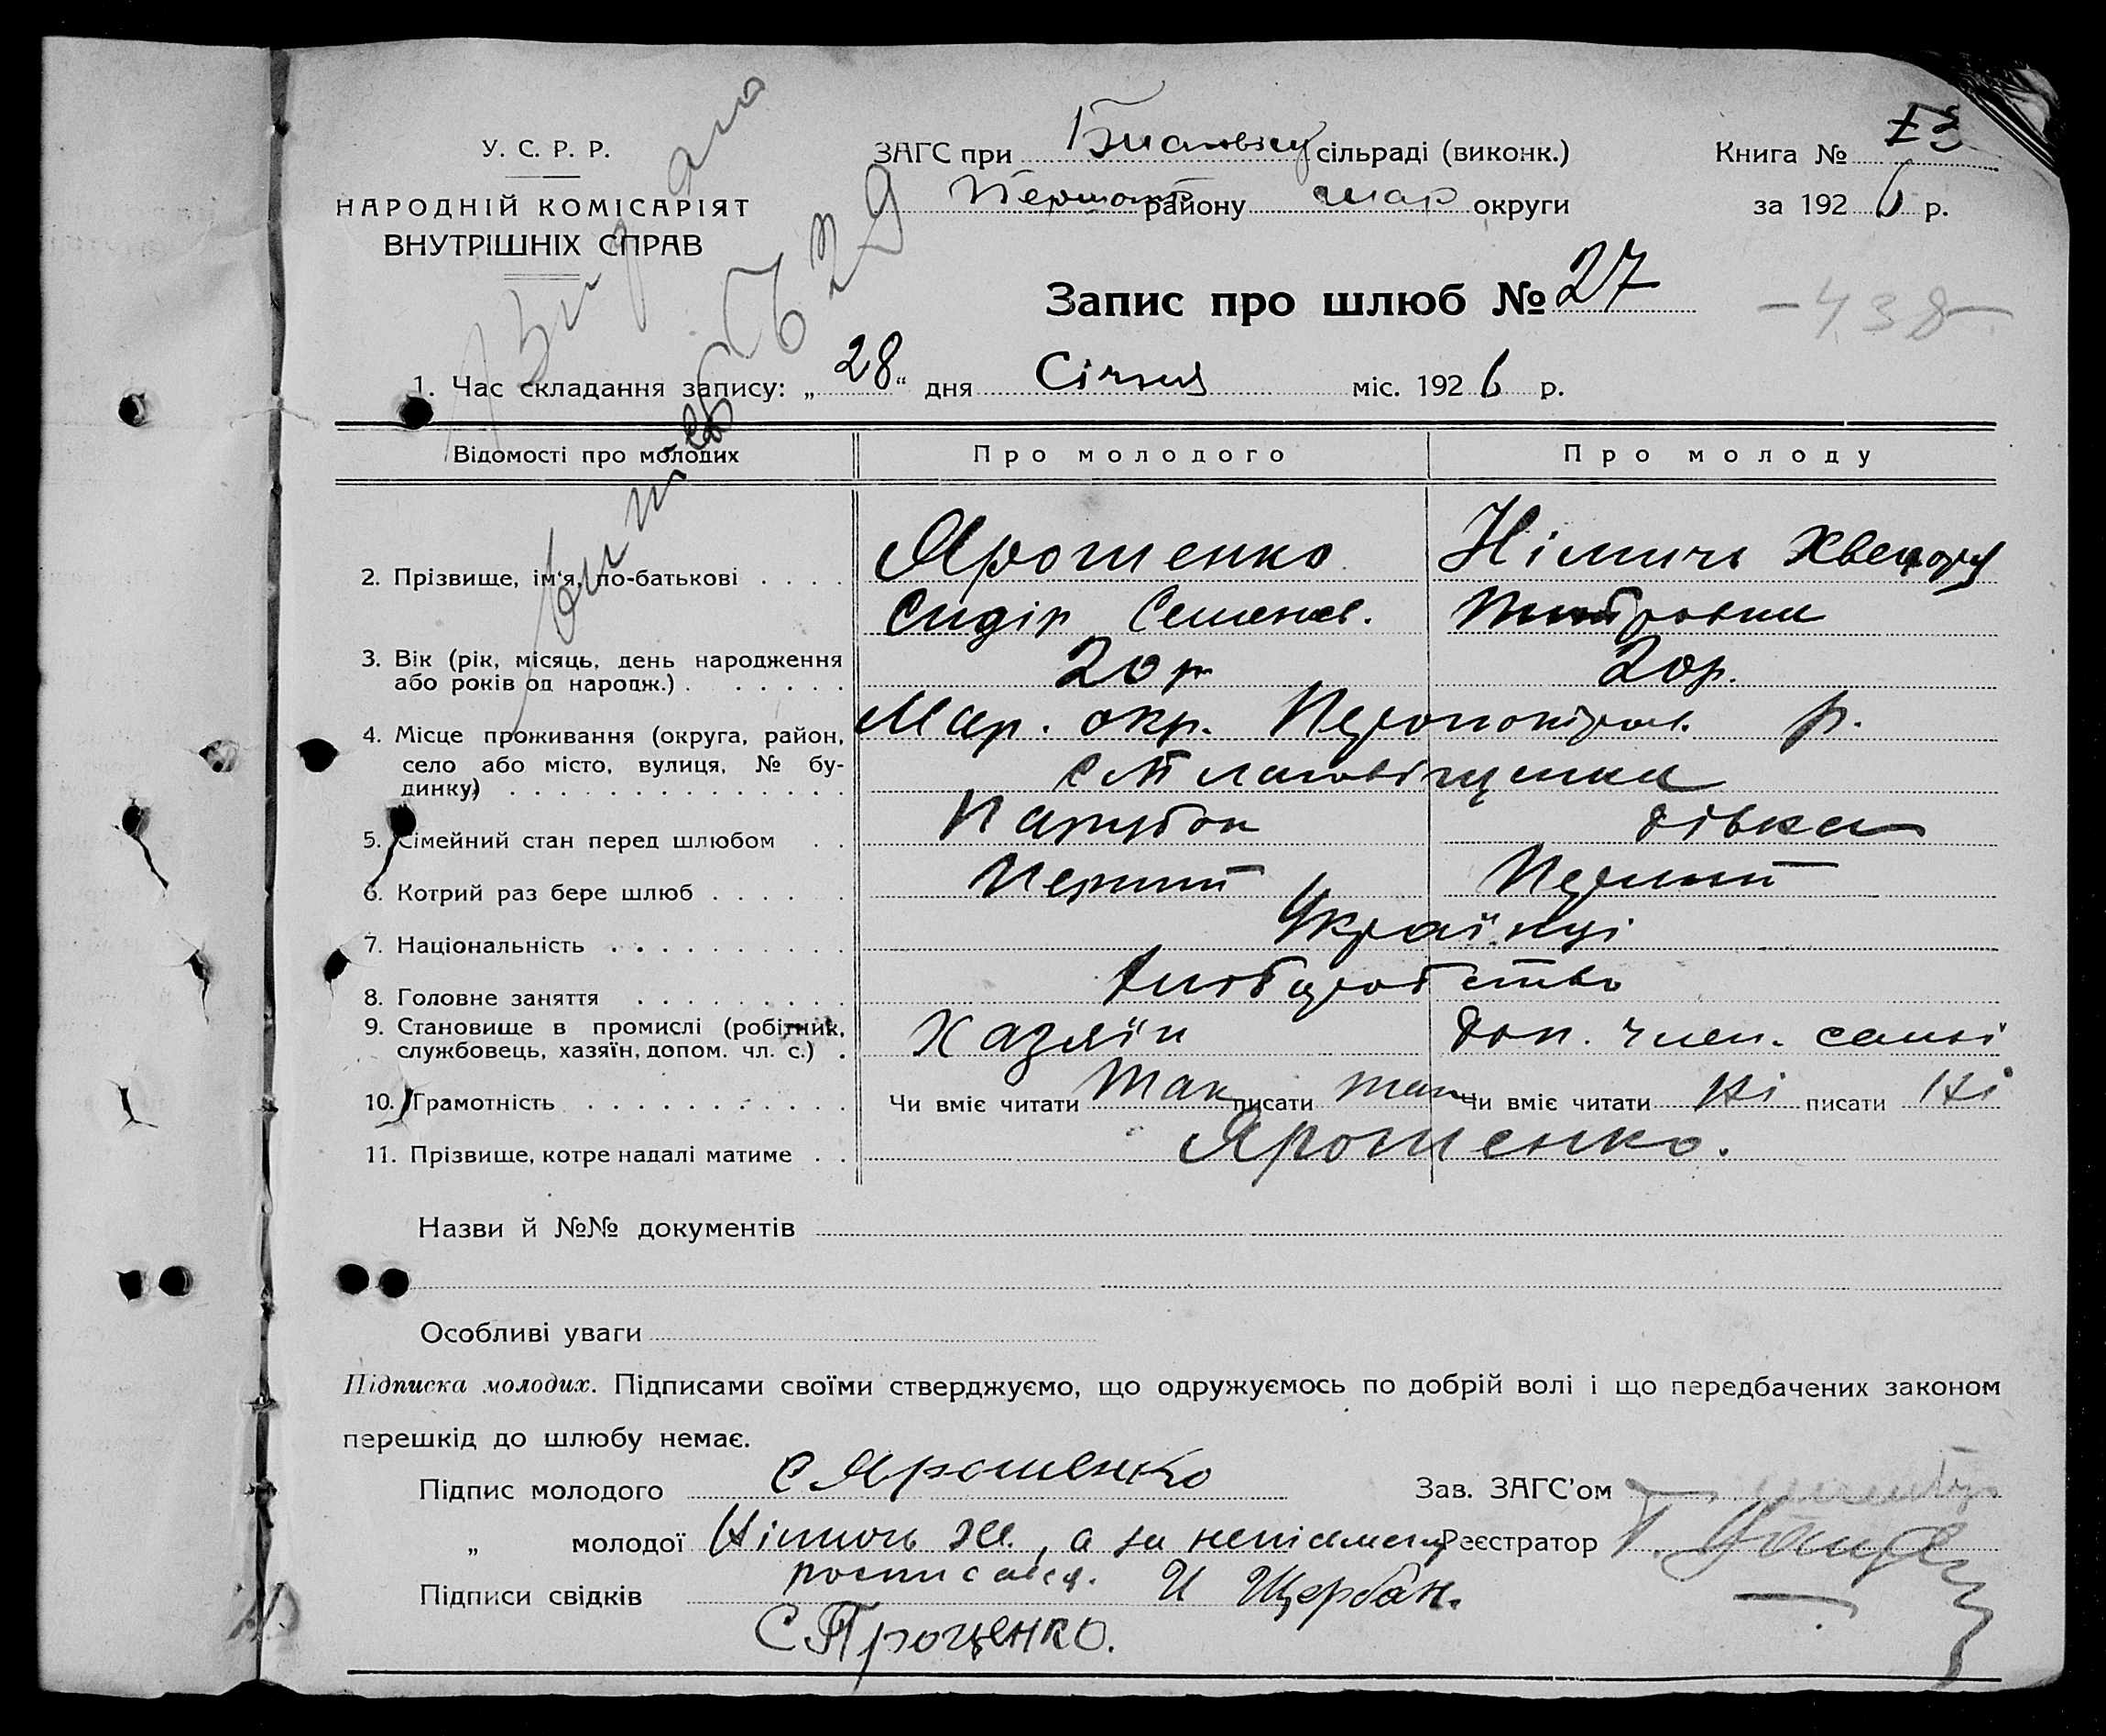 У. С. Р. Р.
НАРОДНІЙ КОМІСАРІЯТ
ВНУТРІШНІХ СПРАВ
ЗАГС при сільраді (виконк.)
району Мар округи
Книга №
за 1926 р.
Запис про шлюб № 27
-438-
1. Час складання запису: „28“ дня Січня міс. 1926 р.
Відомості про молодих Про молодого Про молоду
2. Прізвище, ім'я, по-батькові . . . . Ярошенко Німичь Хведора
Сидір Семенов.
3. Вік (рік, місяць, день народження
або років од народж.) . . . . . . 20 р 20р.
4. Місце проживання (округа, район, Мар. окр. р.
село або місто, вулиця, № бу-
динку) . . . . . . . . . . . . . .
5. Сімейний стан перед шлюбом . . Парубок дівка
6. Котрий раз бере шлюб . . . . . Перший Перший
7. Національність . . . . . . . . . . Українці
8. Головне заняття . . . . . . . . . Хліборобство
9. Становище в промислі (робітник,
службовець, хазяїн, допом. чл. с.) . Хазяїн Доп. член. самьі
10. Грамотність . . . . . . . . . . . Чи вміє читати Так писати так Чи вміє читати Ні писати Ні
11. Прізвище, котре надалі матиме . . Ярошенко.
Назви й №№ документів
Особливі уваги
Підписка молодих. Підписами своїми стверджуємо, що одружуємось по добрій волі і що передбачених законом
перешкід до шлюбу немає.
Підпис молодого С Ярошенко Зав. ЗАГС'ом
„ молодої Німичь а за Реєстратор
росписався. И Щербак.
Підписи свідків
С Проценко.